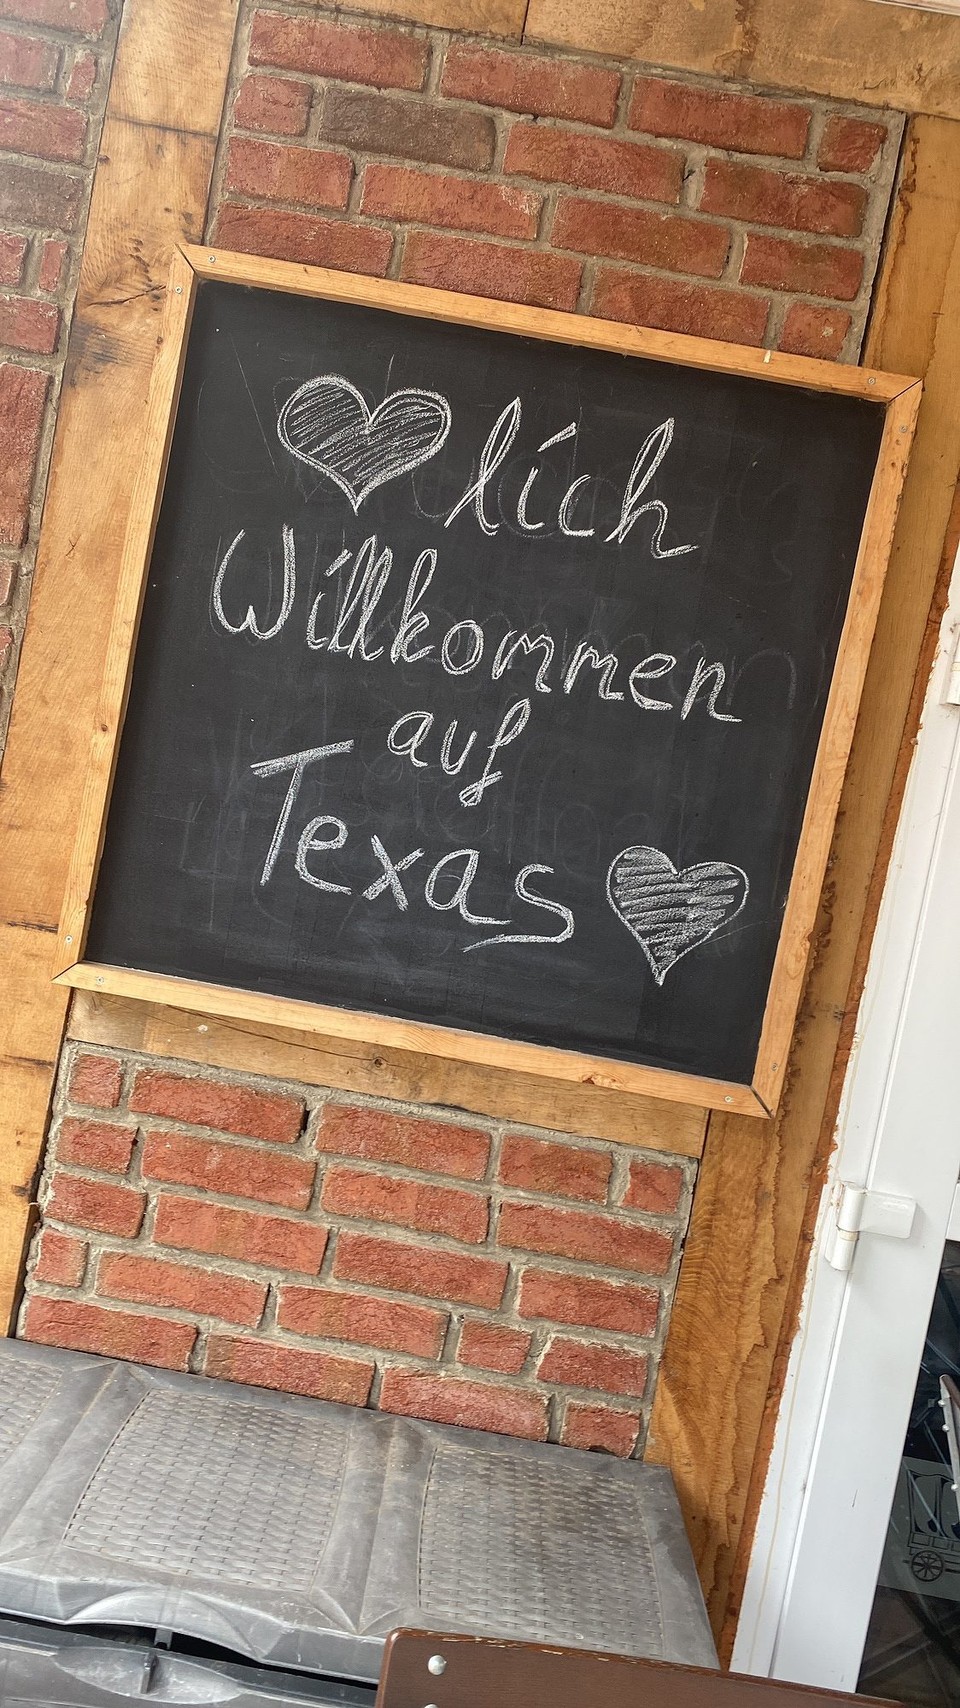 ♥lich
Willkommen
auf
Texas ♥